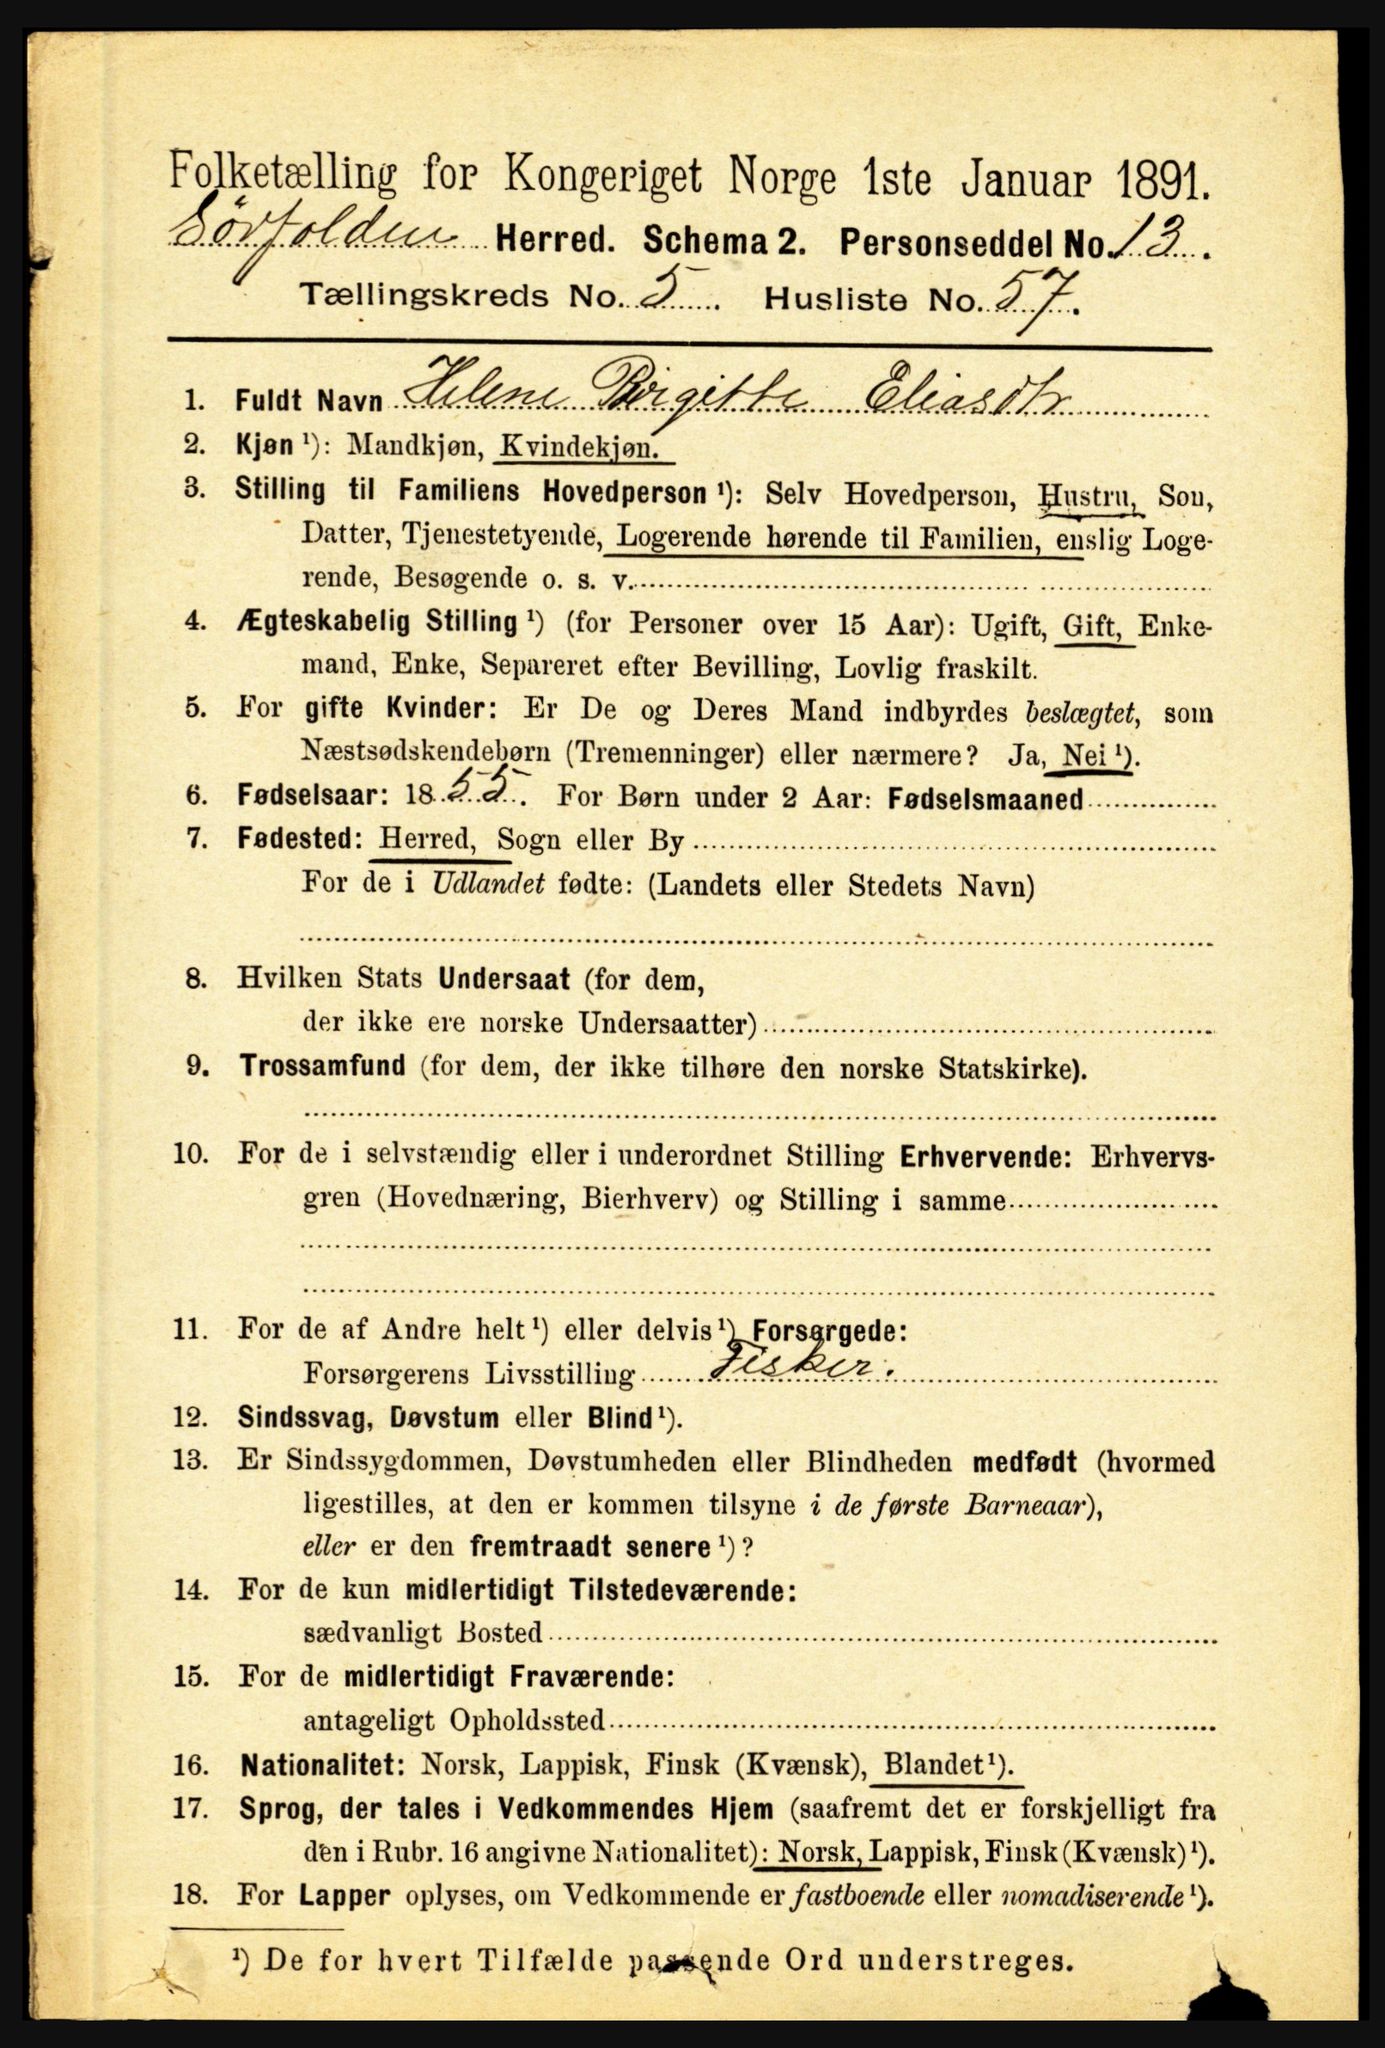 Folketælling for Kongeriget Norge 1ste Januar 1891.
Sørfolden Herred. Schema 2. Personseddel No. 13.
Tællingskreds No. 5. Husliste No. 57.
1. Fuldt Navn Helene Birgitte Eliasdtr
2. Kjøn ¹): Mandkjøn, Kvindekjøn.
3. Stilling til Familiens Hovedperson ¹): Selv Hovedperson, Hustru, Søn,
Datter, Tjenestetyende, Logerende hørende til Familien, enslig Loge-
rende, Besøgende o. s. v.
4. Ægteskabelig Stilling ¹) (for Personer over 15 Aar): Ugift, Gift, Enke-
mand, Enke, Separeret efter Bevilling, Lovlig fraskilt.
5. For gifte Kvinder: Er De og Deres Mand indbyrdes beslægtet, som
Næstsødskendebørn (Tremenninger) eller nærmere? Ja, Nei ¹).
6. Fødselsaar: 1855. For Børn under 2 Aar: Fødselsmaaned
7. Fødested: Herred, Sogn eller By
For de i Udlandet fødte: (Landets eller Stedets Navn)
8. Hvilken Stats Undersaat (for dem,
der ikke ere norske Undersaatter)
9. Trossamfund (for dem, der ikke tilhøre den norske Statskirke).
10. For de i selvstændig eller i underordnet Stilling Erhvervende: Erhvervs-
gren (Hovednæring, Bierhverv) og Stilling i samme
11. For de af Andre helt ¹) eller delvis ¹) Forsørgede:
Forsørgerens Livsstilling Fisker.
12. Sindssvag, Døvstum eller Blind ¹).
13. Er Sindssygdommen, Døvstumheden eller Blindheden medfødt (hvormed
ligestilles, at den er kommen tilsyne i de første Barneaar),
eller er den fremtraadt senere ¹)?
14. For de kun midlertidigt Tilstedeværende:
sædvanligt Bosted
15. For de midlertidigt Fraværende:
antageligt Opholdssted
16. Nationalitet: Norsk, Lappisk, Finsk (Kvænsk), Blandet ¹).
17. Sprog, der tales i Vedkommendes Hjem (saafremt det er forskjelligt fra
den i Rubr. 16 angivne Nationalitet): Norsk, Lappisk, Finsk (Kvænsk) ¹).
18. For Lapper oplyses, om Vedkommende er fastboende eller nomadiserende ¹).
¹) De for hvert Tilfælde passende Ord understreges.